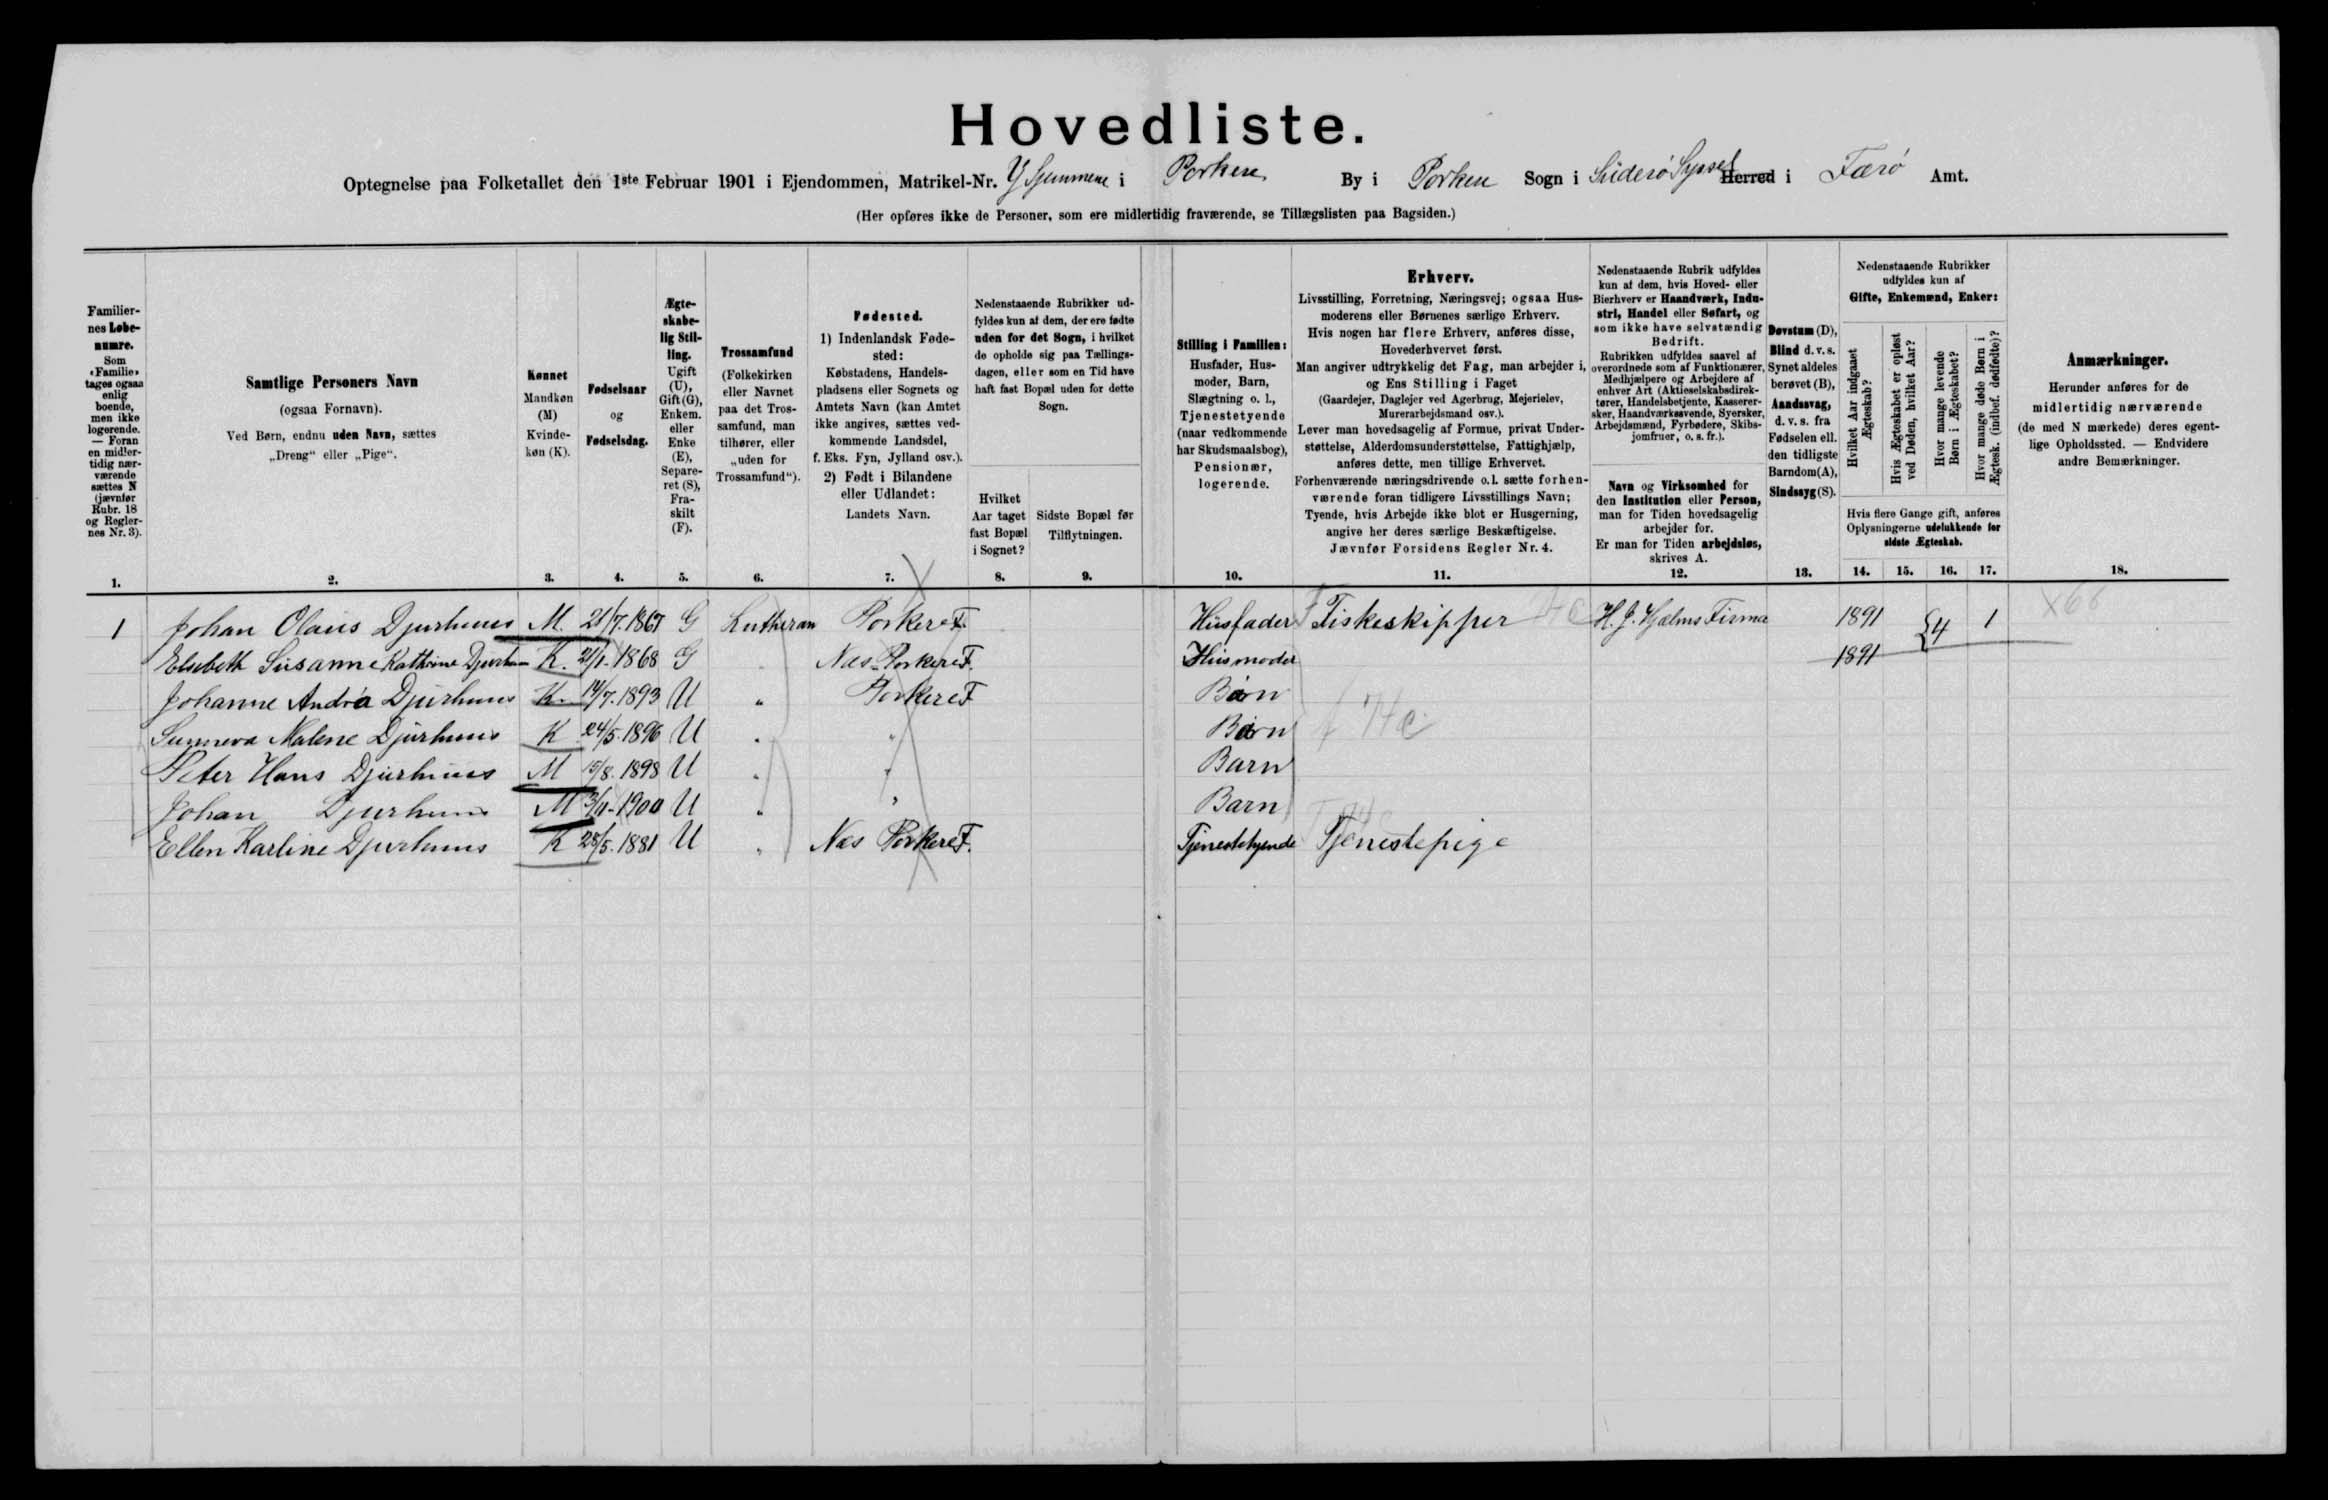 Hovedliste.
Optegnelse paa Folketallet den 1ste Februar 1901 i Ejendommen, Matrikel-Nr. i Porkere By i Porkere Sogn i Süderø Syssel Herred i Færø Amt.
(Her opføres ikke de Personer, som ere midlertidig fraværende, se Tillægslisten paa Bagsiden.)
Familier-
nes Løbe-
numre.
Som
«Familie»
tages ogsaa
enlig
boende,
men ikke
logerende.
— Foran
en midler-
tidig nær-
værende
sættes N
(jævnfør
Rubr. 18
og Regler-
nes Nr. 3).
Samtlige Personers Navn
(ogsaa Fornavn).
Ved Børn, endnu uden Navn, sættes
„Dreng“ eller „Pige“.
Kønnet
Mandkøn
(M)
Kvinde-
køn (K).
Fødselsaar
og
Fødselsdag.
Ægte-
skabe-
lig Stil-
ling.
Ugift
(U),
Gift (G),
Enkem.
eller
Enke
(E),
Separe-
ret (S),
Fra-
skilt
(F).
Trossamfund
(Folkekirken
eller Navnet
paa det Tros-
samfund, man
tilhører, eller
„uden for
Trossamfund“).
Fødested.
1) Indenlandsk Føde-
sted:
Købstadens, Handels-
pladsens eller Sognets og
Amtets Navn (kan Amtet
ikke angives, sættes ved-
kommende Landsdel,
f. Eks. Fyn, Jylland osv.).
2) Født i Bilandene
eller Udlandet:
Landets Navn.
Nedenstaaende Rubrikker ud-
fyldes kun af dem, der ere fødte
uden for det Sogn, i hvilket
de opholde sig paa Tællings-
dagen, eller som en Tid have
haft fast Bopæl uden for dette
Sogn.
Hvilket
Aar taget
fast Bopæl
i Sognet?
Sidste Bopæl før
Tilflytningen.
Stilling i Familien:
Husfader, Hus-
moder, Barn,
Slægtning o. l.,
Tjenestetyende
(naar vedkommende
har Skudsmaalsbog),
Pensionær,
logerende.
Erhverv.
Livsstilling, Forretning, Næringsvej; ogsaa Hus-
moderens eller Børnenes særlige Erhverv.
Hvis nogen har flere Erhverv, anføres disse,
Hovederhvervet først.
Man angiver udtrykkelig det Fag, man arbejder i,
og Ens Stilling i Faget
(Gaardejer, Daglejer ved Agerbrug, Mejerielev,
Murerarbejdsmand osv.).
Lever man hovedsagelig af Formue, privat Under-
støttelse, Alderdomsunderstøttelse, Fattighjælp,
anføres dette, men tillige Erhvervet.
Forhenværende næringsdrivende o. l. sætte forhen-
værende foran tidligere Livsstillings Navn;
Tyende, hvis Arbejde ikke blot er Husgerning,
angive her deres særlige Beskæftigelse.
Jævnfør Forsidens Regler Nr. 4.
Nedenstaaende Rubrik udfyldes
kun af dem, hvis Hoved- eller
Bierhverv er Haandværk, Indu-
stri, Handel eller Søfart, og
som ikke have selvstændig
Bedrift.
Rubrikken udfyldes saavel af
overordnede som af Funktionærer,
Medhjælpere og Arbejdere af
enhver Art (Aktieselskabsdirek-
tører, Handelsbetjente, Kasserer-
sker, Haandværkssvende, Syersker,
Arbejdsmænd, Fyrbødere, Skibs-
jomfruer, o. s. fr.).
Navn og Virksomhed for
den Institution eller Person,
man for Tiden hovedsagelig
arbejder for.
Er man for Tiden arbejdsløs,
skrives A.
Døvstum (D),
Blind d. v. s.
Synet aldeles
berøvet (B),
Aandssvag,
d. v. s. fra
Fødselen ell.
den tidligste
Barndom (A),
Sindssyg (S).
Nedenstaaende Rubrikker
udfyldes kun af
Gifte, Enkemænd, Enker:
Hvilket Aar indgaaet
Ægteskab?
Hvis Ægteskabet er opløst
ved Døden, hvilket Aar?
Hvor mange levende
Børn i Ægteskabet?
Hvor mange døde Børn i
Ægtesk. (indbef. dødfødte)?
Hvis flere Gange gift, anføres
Oplysningerne udelukkende for
sidste Ægteskab.
Anmærkninger.
Herunder anføres for de
midlertidig nærværende
(de med N mærkede) deres egent-
lige Opholdssted. — Endvidere
andre Bemærkninger.
1. 2. 3. 4. 5. 6. 7. 8. 9. 10. 11. 12. 13. 14. 15. 16. 17. 18.
1 Johan Olaus Djurhuus M. 21/7.1867 G Lutheran Porkere F. Husfader Fiskeskipper H. J. Hjalms Firma 1891 4 1 x66
Elsebeth Susanne Kathrine Djurhuus K. 21/1.1868 G Næs Porkere F. Husmoder 1891
Johanne Andrea Djurhuus K. 14/7.1893 U " Porkere F Barn
Sunneva Malene Djurhuus K 24/5.1896 U " " Barn
Peter Hans Djurhuus M 15/8.1898 U " " Barn
Johan Djurhuus M 3/11.1900 U " " Barn
Ellen Karline Djurhuus K 28/5.1881 U " Næs Porkere F. Tjenestetyende Tjenestepige